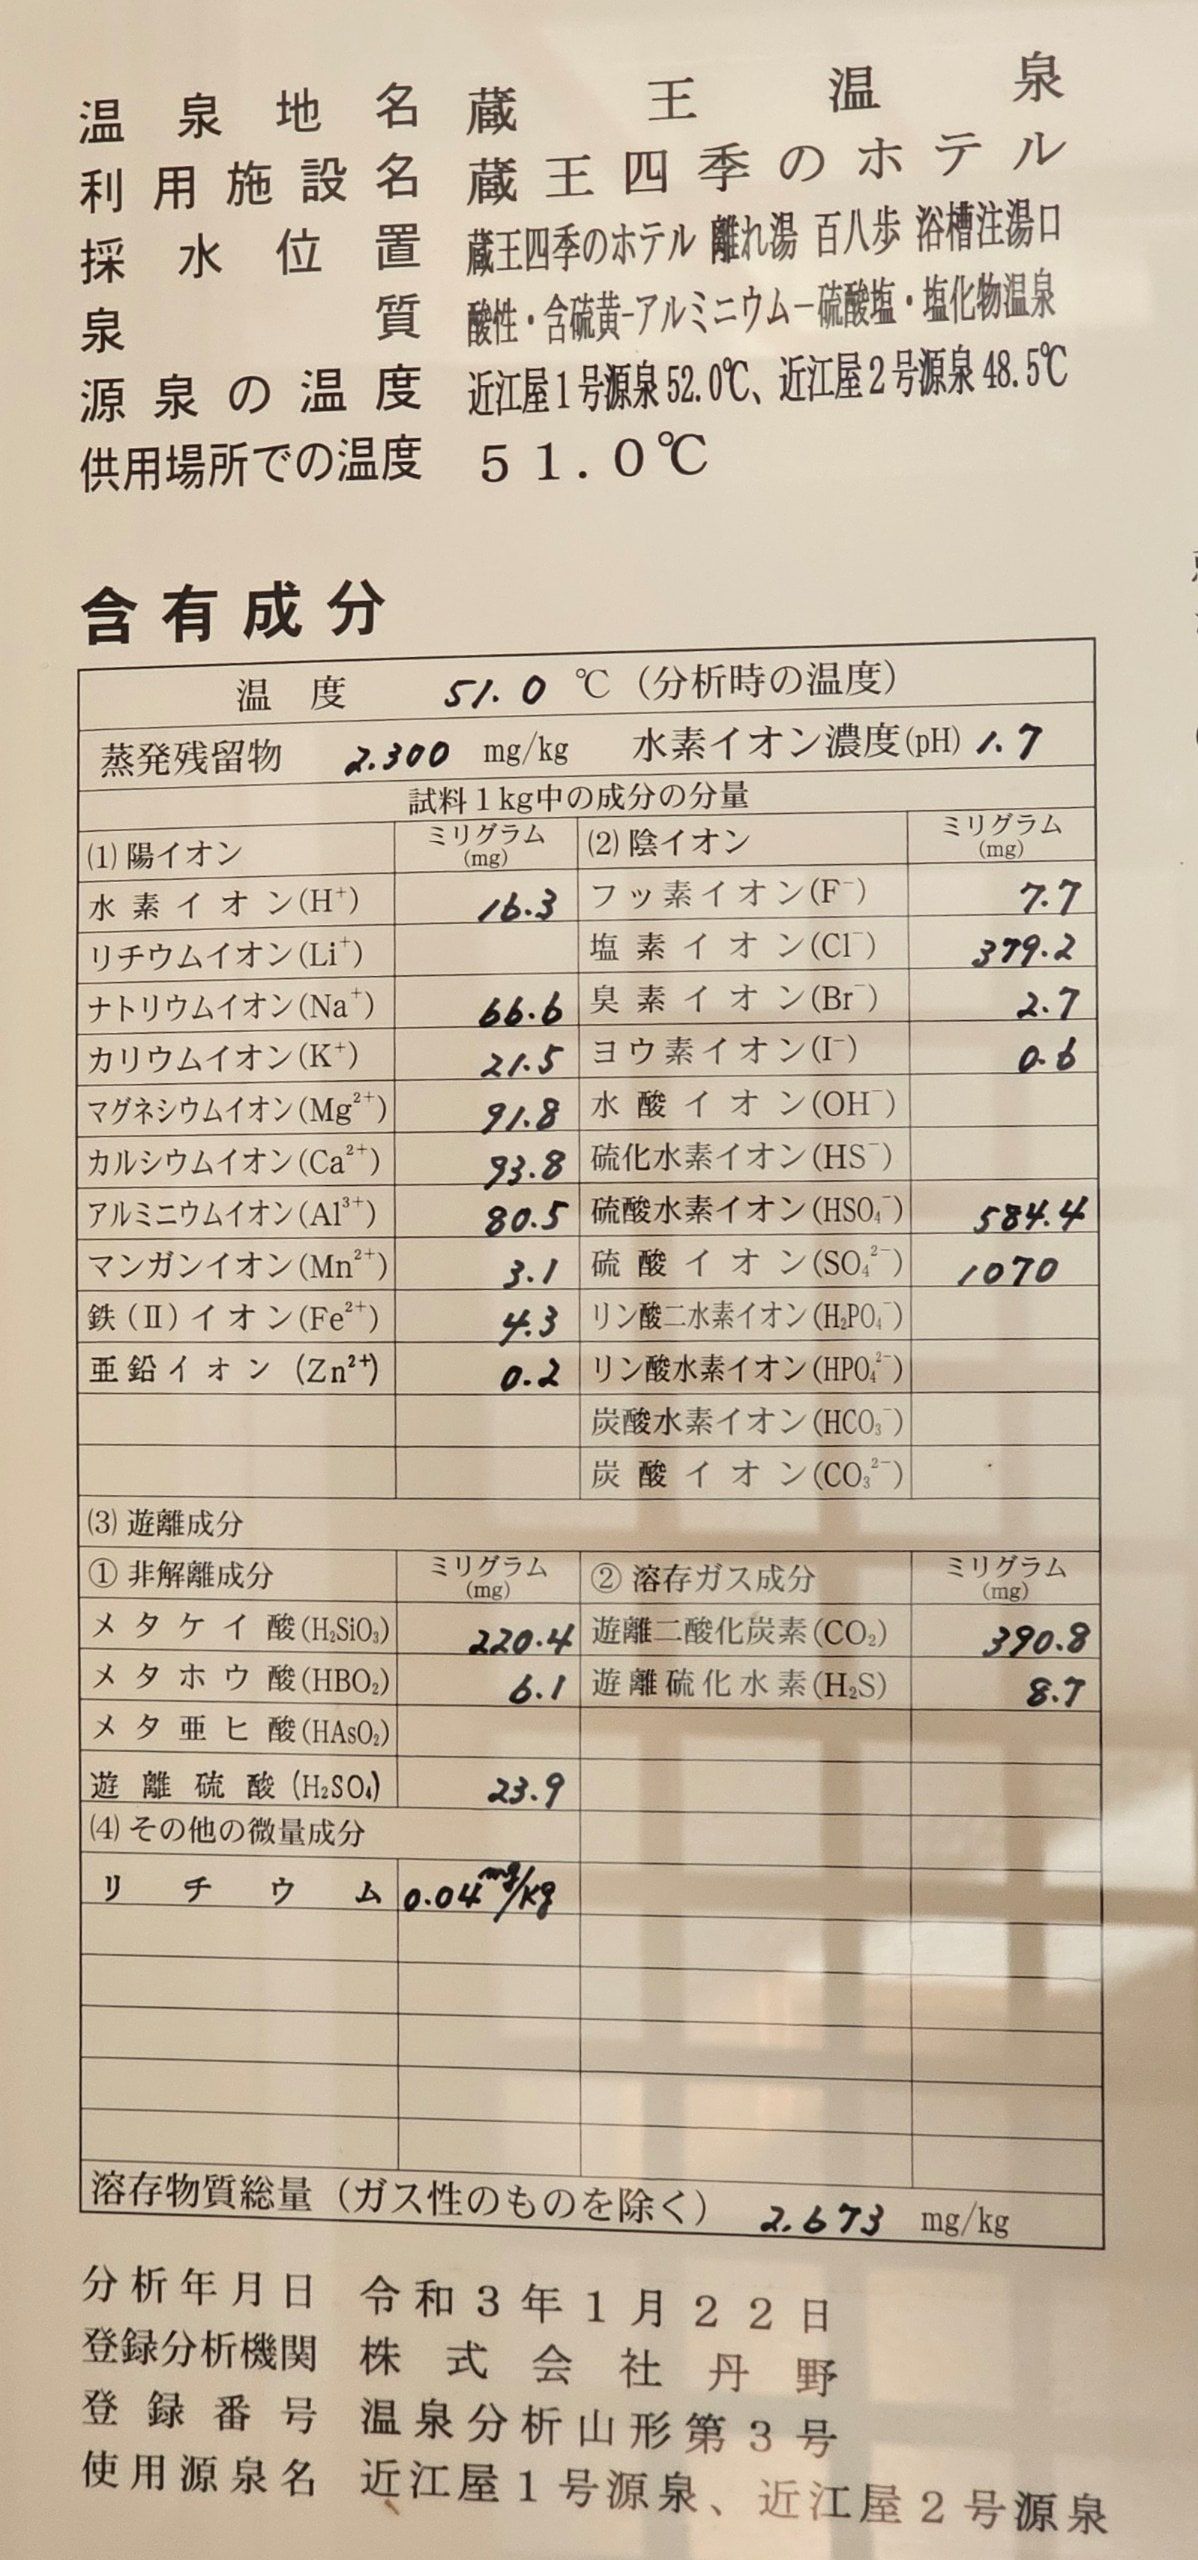 温泉地名 蔵王温泉
利用施設名 蔵王四季のホテル
採水位置 蔵王四季のホテル 離れ湯 百八歩 浴槽注湯口
泉質 酸性・含硫黄-アルミニウム-硫酸塩・塩化物温泉
源泉の温度 近江屋1号源泉52.0℃、近江屋2号源泉48.5℃
供用場所での温度 51.0℃
含有成分
温度 51.0 ℃(分析時の温度)
蒸発残留物 2.300 mg/kg 水素イオン濃度(pH) 1.7
試料1kg中の成分の分量
(1)陽イオン ミリグラム(mg) (2)陰イオン ミリグラム(mg)
水素イオン(H⁺) 16.3 フッ素イオン(F⁻) 7.7
リチウムイオン(Li⁺) 塩素イオン(Cl⁻) 379.2
ナトリウムイオン(Na⁺) 66.6 臭素イオン(Br⁻) 2.7
カリウムイオン(K⁺) 21.5 ヨウ素イオン(I⁻) 0.6
マグネシウムイオン(Mg²⁺) 91.8 水酸イオン(OH⁻)
カルシウムイオン(Ca²⁺) 93.8 硫化水素イオン(HS⁻)
アルミニウムイオン(Al³⁺) 80.5 硫酸水素イオン(HSO₄⁻) 584.4
マンガンイオン(Mn²⁺) 3.1 硫酸イオン(SO₄²⁻) 1070
鉄(Ⅱ)イオン(Fe²⁺) 4.3 リン酸二水素イオン(H₂PO₄⁻)
亜鉛イオン(Zn²⁺) 0.2 リン酸水素イオン(HPO₄²⁻)
炭酸水素イオン(HCO₃⁻)
炭酸イオン(CO₃²⁻)
(3)遊離成分
①非解離成分 ミリグラム(mg) ②溶存ガス成分 ミリグラム(mg)
メタケイ酸(H₂SiO₃) 220.4 遊離二酸化炭素(CO₂) 390.8
メタホウ酸(HBO₂) 6.1 遊離硫化水素(H₂S) 8.7
メタ亜ヒ酸(HAsO₂)
遊離硫酸(H₂SO₄) 23.9
(4)その他の微量成分
リチウム 0.04mg/kg
溶存物質総量(ガス性のものを除く) 2.673 mg/kg
分析年月日 令和3年1月22日
登録分析機関 株式会社丹野
登録番号 温泉分析山形第3号
使用源泉名 近江屋1号源泉、近江屋2号源泉